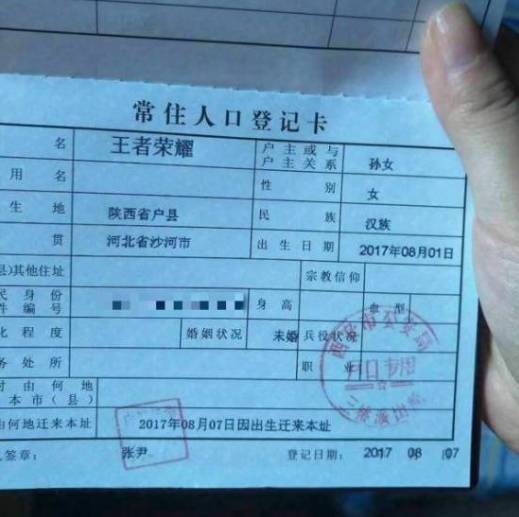 常住人口登记卡
名 王者荣耀 户主或与户主关系 孙女
用名 性别 女
生地 陕西省户县 民族 汉族
贯 河北省沙河市 出生日期 2017年08月01日
县)其他住址 宗教信仰
民身份件编号 身高 血型
化程度 婚姻状况 未婚 兵役状况
务处所 职业
时由何地
本市(县)
何地迁来本址 2017年08月07日因出生迁来本址
签章: 张尹 登记日期: 2017 08 07
西安市公安局
户口专用